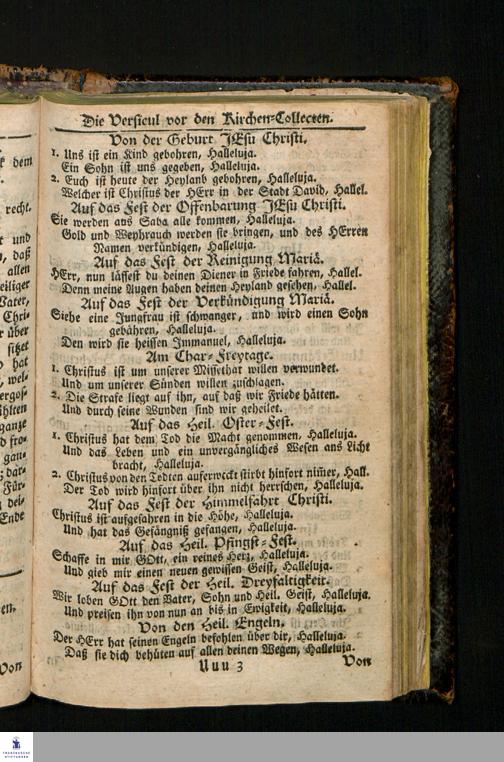 Die Versicul vor den Kirchen-Collecten.
Von der Geburt JEsu Christi.
1. Uns ist ein Kind gebohren, Halleluja.
Ein Sohn ist uns gegeben, Halleluja.
2. Euch ist heute der Heyland gebohren, Halleluja.
Welcher ist Christus der HErr in der Stadt David, Hallel.
Auf das Fest der Offenbarung JEsu Christi.
Sie werden aus Saba alle kommen, Halleluja.
Gold und Weyhrauch werden sie bringen, und des HErren
Namen verkündigen, Halleluja.
Auf das Fest der Reinigung Mariä.
HErr, nun lässest du deinen Diener in Friede fahren, Hallel.
Denn meine Augen haben deinen Heyland gesehen, Hallel.
Auf das Fest der Verkündigung Mariä.
Siehe eine Jungfrau ist schwanger, und wird einen Sohn
gebähren, Halleluja.
Den wird sie heissen Immanuel, Halleluja.
Am Char-Freytage.
1. Christus ist um unserer Missethat willen verwundet.
Und um unserer Sünden willen zuschlagen.
2. Die Strafe liegt auf ihn, auf daß wir Friede hätten.
Und durch seine Wunden sind wir geheilet.
Auf das Heil. Oster-Fest.
1. Christus hat dem Tod die Macht genommen, Halleluja.
Und das Leben und ein unvergängliches Wesen ans Licht
bracht, Halleluja.
2. Christus von den Todten auferweckt stirbt hinfort nim̃er, Hall.
Der Tod wird hinfort über ihn nicht herrschen, Halleluja.
Auf das Fest der Himmelfahrt Christi.
Christus ist aufgefahren in die Höhe, Halleluja.
Und hat das Gefängniß gefangen, Halleluja.
Auf das Heil. Pfingst-Fest.
Schaffe in mir GOtt, ein reines Herz, Halleluja.
Und gieb mir einen neuen gewissen Geist, Halleluja.
Auf das Fest der Heil. Dreyfaltigkeit.
Wir loben GOtt den Vater, Sohn und Heil. Geist, Halleluja.
Und preisen ihn von nun an bis in Ewigkeit, Halleluja.
Von den Heil. Engeln.
Der HErr hat seinen Engeln befohlen über dir, Halleluja.
Daß sie dich behüten auf allen deinen Wegen, Halleluja.
Uuu 3
Von